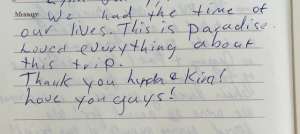 Message: We had the time of
our lives. This is paradise.
Loved everything about
this trip.
Thank you & Kira!
Love you guys!